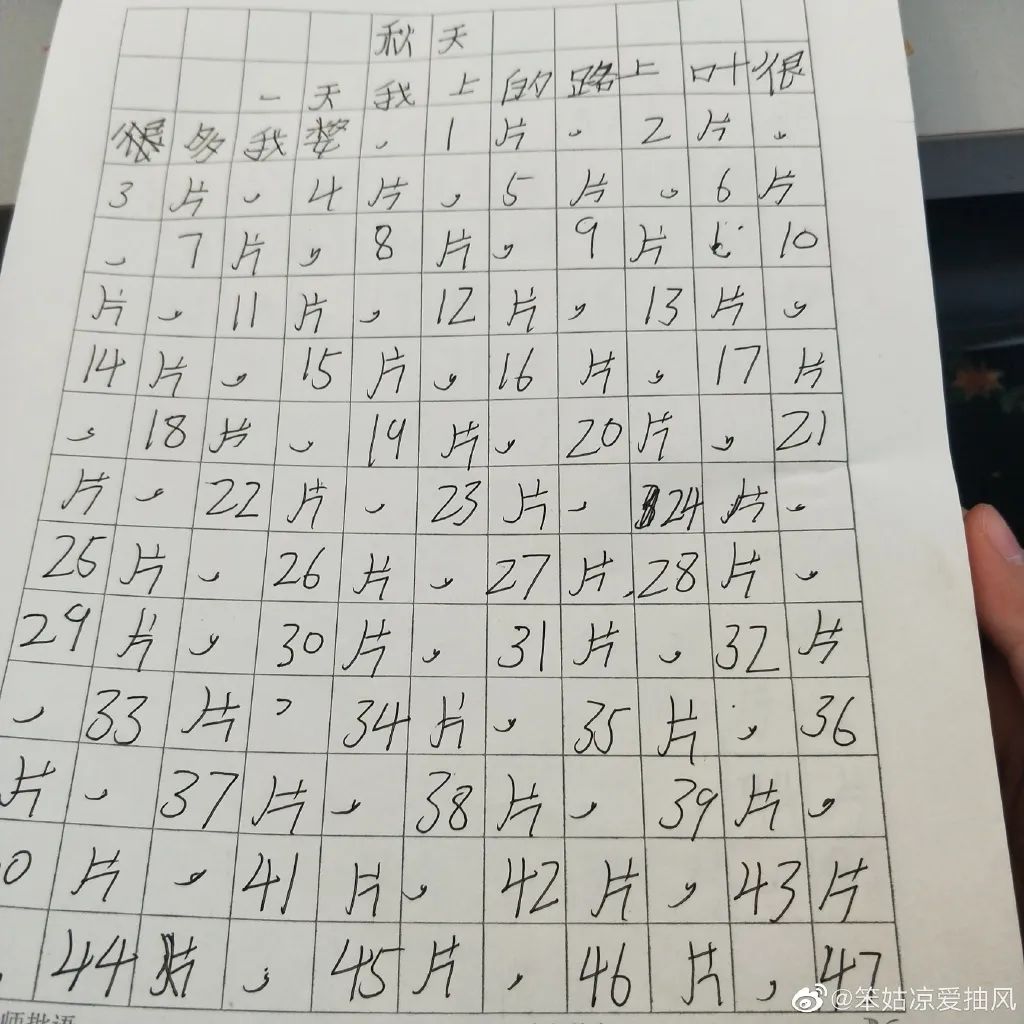 秋天
一天我上的路上叶很
很多我娄、1片、2片、
3片、4片、5片、6片
、7片、8片、9片、10
片、11片、12片、13片、
14片、15片、16片、17片
、18片、19片、20片、21
片、22片、23片、24片、
25片、26片、27片、28片、
29片、30片、31片、32片
、33片、34片、35片、36
片、37片、38片、39片、
0片、41片、42片、43片
、44片、45片、46片、47
师批语
@笨姑凉爱抽风